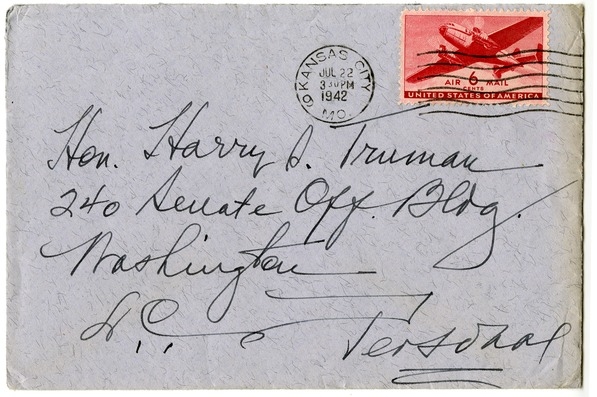 KANSAS CITY
JUL 22
3 30 PM
1942
MO.
AIR 6 MAIL
CENTS
UNITED STATES OF AMERICA
Hon. Harry S. Truman
240 Senate Off. Bldg.
Washington
D.C.
Personal